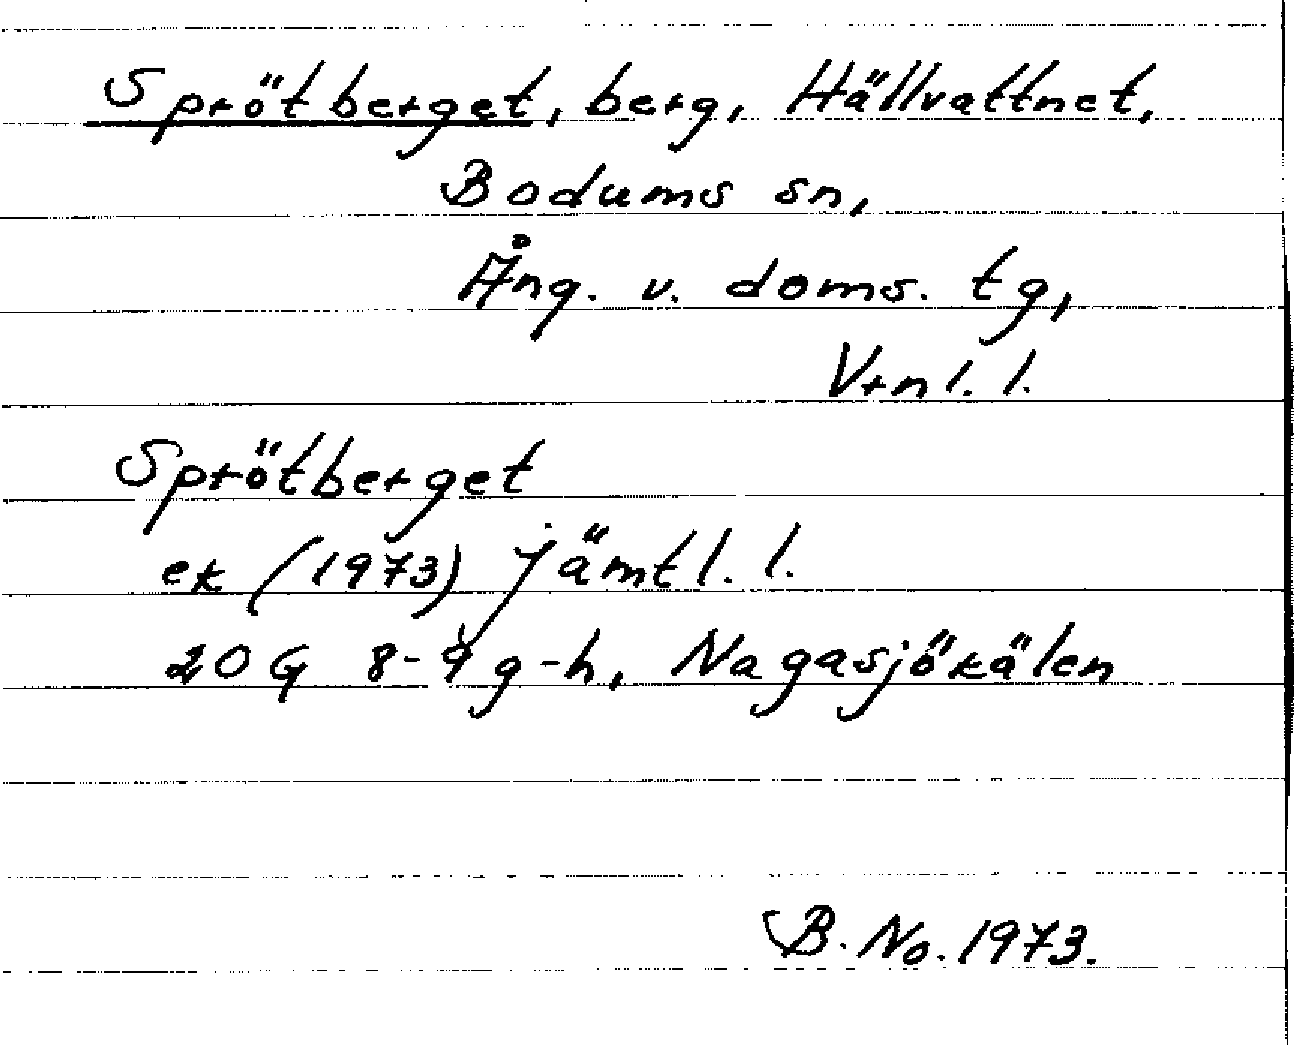 Sprötberget, berg, Hällvattnet,
Bodums sn,
Ång. v. doms. tg,
Vrnl. l.
Sprötberget
ek (1973) jämtl. l.
20G 8-9 g-h, Nagasjökälen
B. No. 1973.